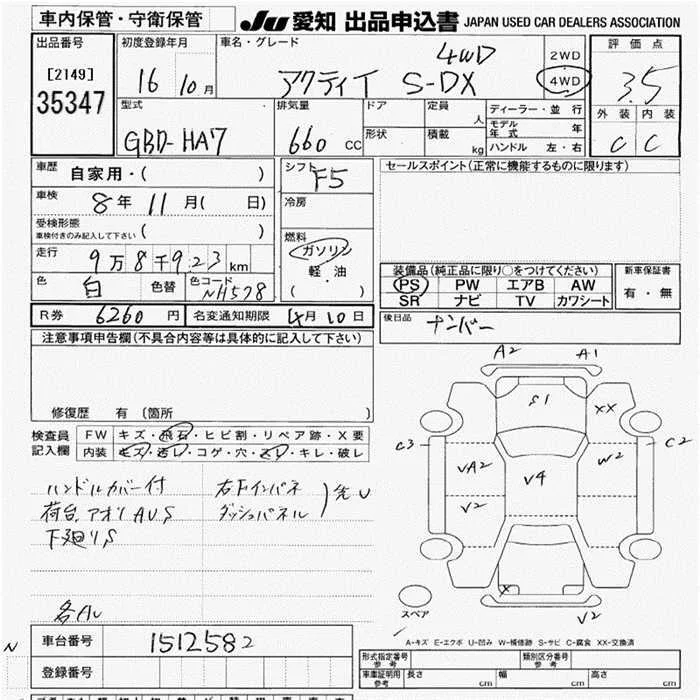 車内保管・守衛保管
JU 愛知 出品申込書 JAPAN USED CAR DEALERS ASSOCIATION
出品番号
[2149]
35347
初度登録年月
16 10月
車名・グレード
4WD
アクティ S-DX
2WD
4WD
評価点
3.5
外装 内装
C C
型式
GBD-HA7
排気量
660 CC
ドア
形状
定員
人
積載
kg
ディーラー・並 行
モデル年式 年
ハンドル 左・右
車歴
自家用・( )
車検
8年 11月( 日)
受検形態
車検付きのみ記入して下さい ( )
走行
9万8千923km
色
白
色替
色コード
NH578
シフト
F5
冷房
燃料
ガソリン
軽 油
( )
セールスポイント(正常に機能するものに限ります)
装備品(純正品に限り○をつけてください)
PS PW エアB AW
SR ナビ TV カワシート
新車保証書
有・無
R券 6260円 名変通知期限 4月10日
後日品 ナンバー
注意事項申告欄(不具合内容等は具体的に記入して下さい)
修復歴 有(箇所 )
検査員記入欄
FW キズ・飛石・ヒビ割・リペア跡・X要
内装 キズ・汚レ・コゲ・穴・スレ・キレ・破レ
ハンドルカバー付
荷台、アオリAU,S
下廻り,S
右下インパネ
ダッシュパネル
各AU
A2 A1
S1
XX
C3
C2
VA2
W2
V4
V2
X
V2
スペア
A-キズ E-エクボ U-凹み W-補修跡 S-サビ C-腐食 XX-交換済
N
車台番号 1512582
登録番号
形式指定番号 参考
類別区分番号 参考
車庫証明用 参考
長さ cm
幅 cm
高さ cm